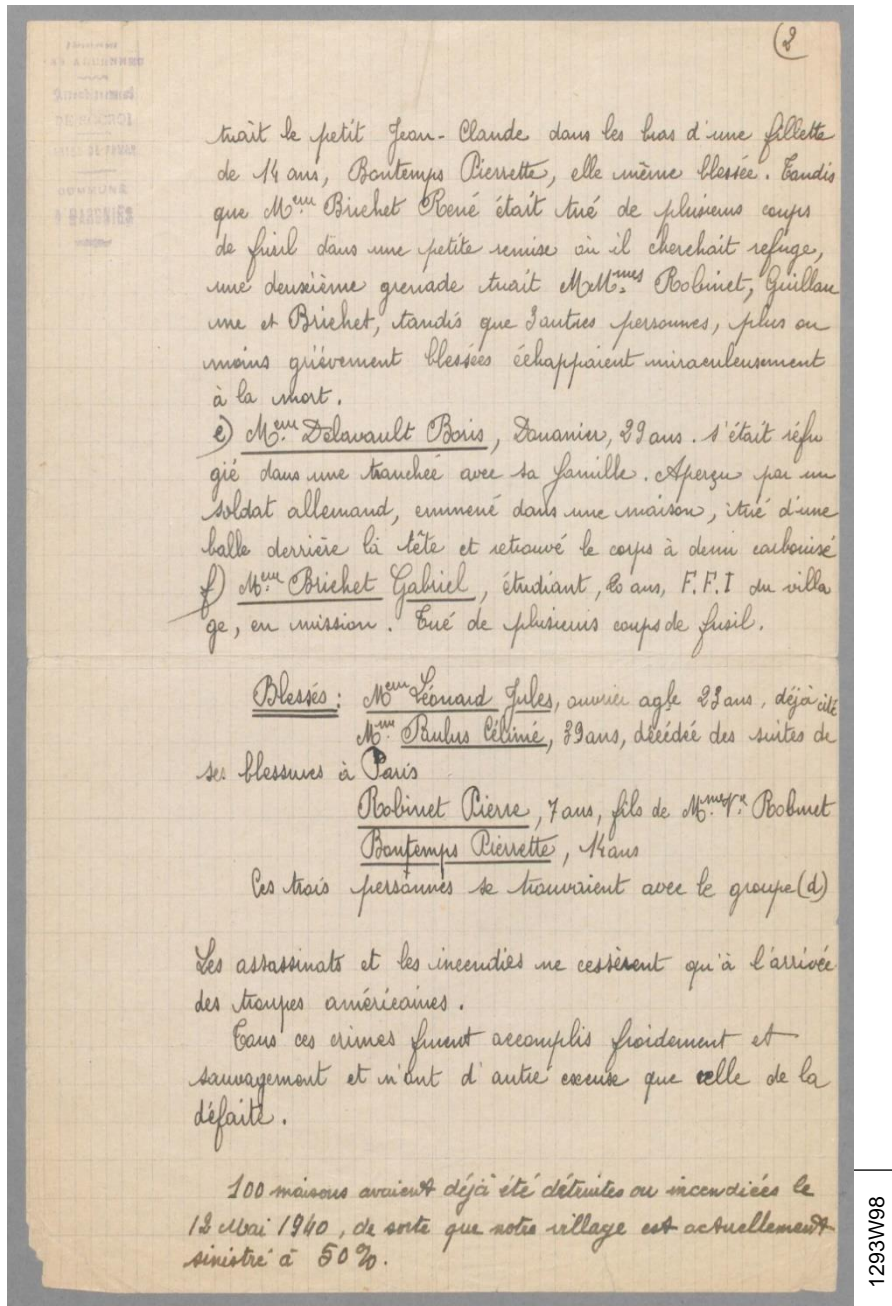 (2
COMMUNE
tuait le petit Jean-Claude dans les bras d'une fillette
de 14 ans, Bontemps Pierrette, elle même blessée. Tandis
que Meur Brichet René était tué de plusieurs coups
de fusil dans une petite remise où il cherchait refuge,
une deuxième grenade tuait MMmes Robinet, Guillau
me et Brichet, tandis que 3 autres personnes, plus ou
moins grièvement blessées échappaient miraculeusement
à la mort.
e) Meur Delavault Boris, Douanier, 29 ans. s'était réfu
gié dans une tranchée avec sa famille. Aperçu par un
soldat allemand, emmené dans une maison, tué d'une
balle derrière la tête et retrouvé le corps à demi carbonisé
f) Meur Brichet Gabriel, étudiant, 20 ans, F.F.I du villa
ge, en mission. Tué de plusieurs coups de fusil.
Blessés : Meur Léonard Jules, ouvrier agle 23 ans, déjà cité
Mme Paulus Céline, 39 ans, décédée des suites de
ses blessures à Paris
Robinet Pierre, 7 ans, fils de Mme Vve Robinet
Bontemps Pierrette, 14 ans
Ces trois personnes se trouvaient avec le groupe (d)
Les assassinats et les incendies ne cessèrent qu'à l'arrivée
des troupes américaines.
Tous ces crimes furent accomplis froidement et
sauvagement et n'ont d'autre excuse que celle de la
défaite.
100 maisons avaient déjà été détruites ou incendiées le
12 Mai 1940, de sorte que notre village est actuellement
sinistré à 50%.
1293W98